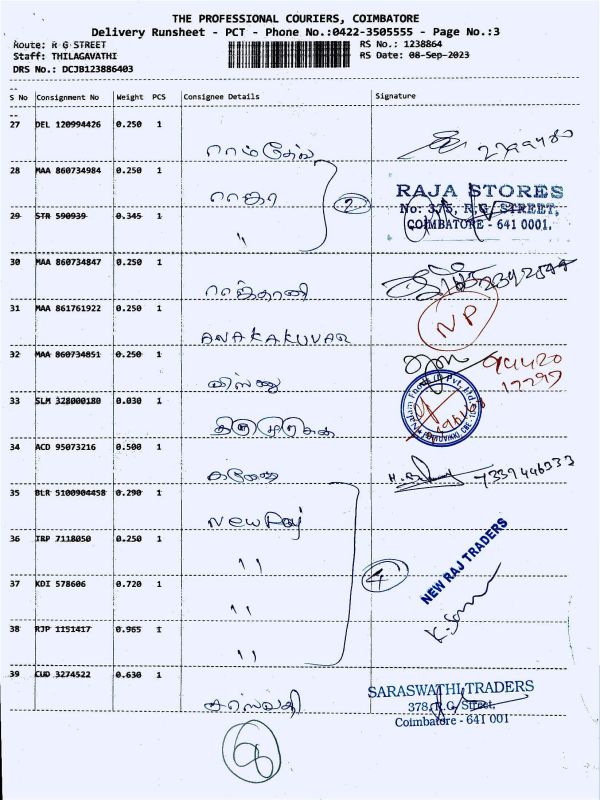 THE PROFESSIONAL COURIERS, COIMBATORE
Delivery Runsheet - PCT - Phone No.:0422-3505555 - Page No.:3
Route: R G STREET
RS No.: 1238864
Staff: THILAGAVATHI
RS Date: 08-Sep-2023
DRS No.: DCJB123886403
S No Consignment No Weight PCS Consignee Details Signature
27 DEL 120994426 0.250 1
28 MAA 860734984 0.250 1
ராஜா
RAJA STORES
No: 375, R.G. STREET,
COIMBATORE - 641 0001.
2
29 STR 590939 0.345 1
"
30 MAA 860734847 0.250 1
31 MAA 861761922 0.250 1
ANAKAKUVAR
NP
32 MAA 860734851 0.250 1
விஸ்ணு
33 SLM 328000180 0.030 1
திருமுருகன்
34 ACD 95073216 0.500 1
கணேஷ்
35 BLR 5100904458 0.290 1
New Raj
36 TRP 7118050 0.250 1
"
4
NEW RAJ TRADERS
37 KDI 578606 0.720 1
"
38 RJP 1151417 0.965 1
"
39 CUD 3274522 0.630 1
சரஸ்வதி
SARASWATHI TRADERS
378, R.G. Street,
Coimbatore - 641 001
8